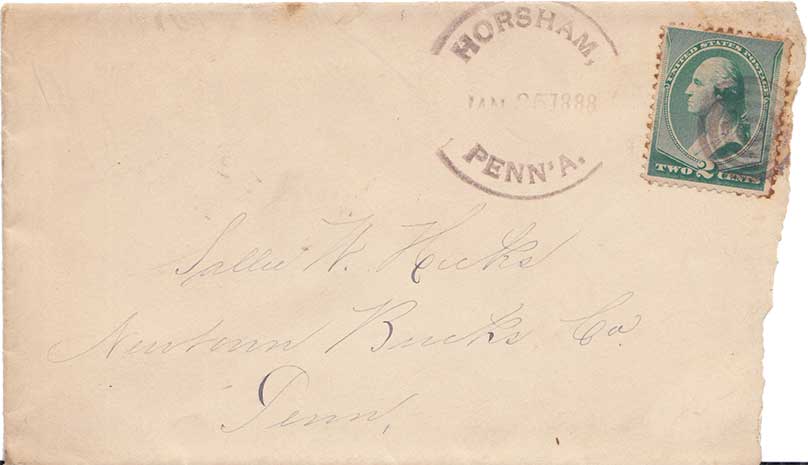 HORSHAM,
JAN 25 1888
PENN'A.
UNITED STATES POSTAGE
TWO 2 CENTS
Sallie W. Hicks
Newtown Bucks Co.
Penn,